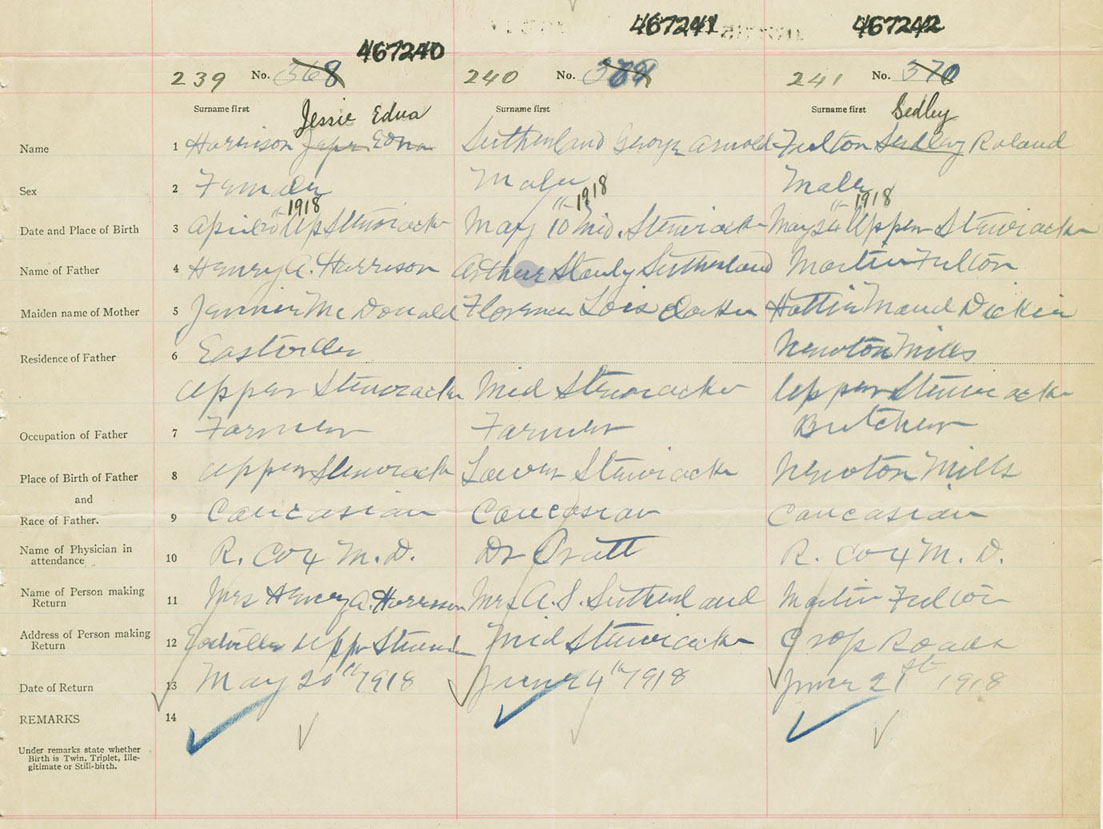 467240 467241 467242
239 No. 368 240 No. 241 No. 370
Surname first Surname first Surname first
Jessie Edna Sedley
Name 1 Harrison Edna Sutherland George Arnold Fulton Sedley Roland
Sex 2 Female Male Male
1918 1918 1918
Date and Place of Birth 3 April 20th Up Stewiacke May 10th Mid. Stewiacke May 24th Upper Stewiacke
Name of Father 4 Henry A. Harrison Arthur Stanly Sutherland Martin Fulton
Maiden name of Mother 5 Jennie McDonald Florence Lois Hattie Maud Dickie
Residence of Father 6 Eastville Newton Mills
Upper Stewiacke Mid Stewiacke Upper Stewiacke
Occupation of Father 7 Farmer Farmer Butcher
Place of Birth of Father 8 Upper Stewiack Lower Stewiacke Newton Mills
and
Race of Father. 9 Caucasian Caucasian Caucasian
Name of Physician in
attendance 10 R. Cox M.D. Dr Pratt R. Cox M.D.
Name of Person making
Return 11 Mrs Henry A. Harrison Mrs A. S. Sutherland Martin Fulton
Address of Person making
Return 12 Eastville Upper Mid Stewiacke Crop Roads
Date of Return 13 May 20th 1918 June 4th 1918 June 21st 1918
REMARKS 14
Under remarks state whether
Birth is Twin, Triplet, Ille-
gitimate or Still-birth.